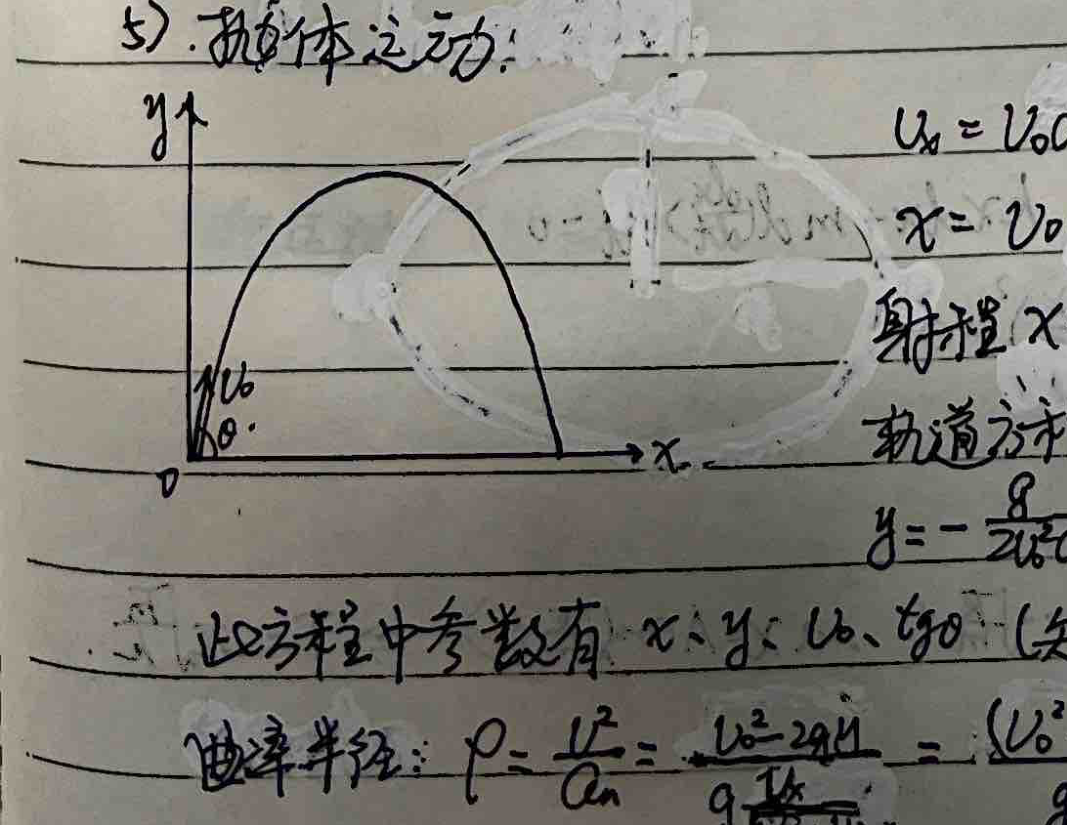 5). 抛体运动:
y
v₀
θ
0
x
vₓ = v₀c
x = v₀
射程 x
轨道方
y = - g/2v₀²c
此方程中参数有 x、y、v₀、tgθ (
曲率半径: ρ = v²/aₙ = v₀²-2gy/g vₓ = (v₀²/g